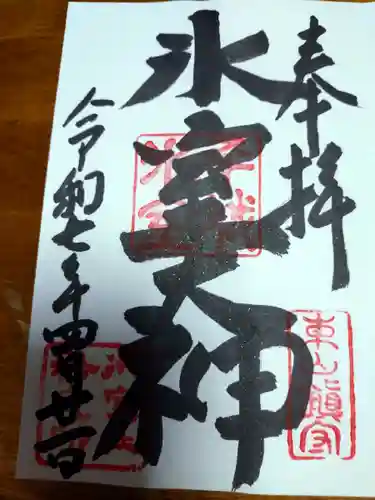 奉拝
氷室大神
令和七年四月廿一日
東山鎮守